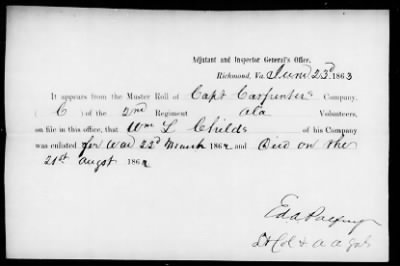 Adjutant and Inspector General's Office,
Richmond, Va. June 23d 1863
It appears from the Muster Roll of Capt Carpenters Company,
( C ) of the 2nd Regiment Ala Volunteers,
on file in this office, that Wm L Childs of his Company
was enlisted for War 22d March 1862 and Died on the
21st augst 1862
Ed A Palfrey
Lt Col & A A Genl